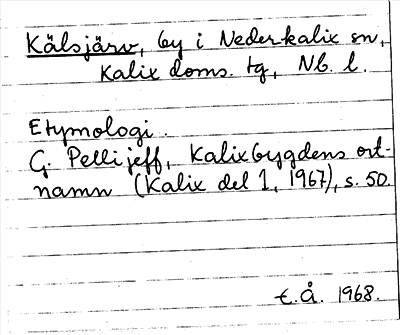 Kälsjärv, by i Nederkalix sn,
Kalix doms. tg, Nb. l.
Etymologi.
G. Pellijeff, Kalixbygdens ort-
namn (Kalix del 1, 1967), s. 50.
E.Å. 1968.